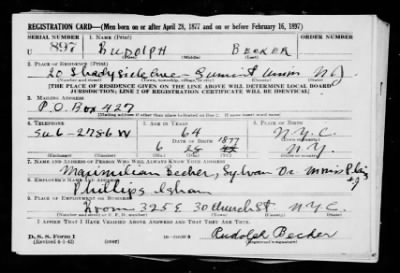 REGISTRATION CARD—(Men born on or after April 28, 1877 and on or before February 16, 1897)
SERIAL NUMBER 1. NAME (Print) ORDER NUMBER
U 897 RUDOLPH BECKER
(First) (Middle) (Last)
2. PLACE OF RESIDENCE (Print)
20 Shadyside Ave Summit Union N.J.
(Number and street) (Town, township, village, or city) (County) (State)
[THE PLACE OF RESIDENCE GIVEN ON THE LINE ABOVE WILL DETERMINE LOCAL BOARD
JURISDICTION; LINE 2 OF REGISTRATION CERTIFICATE WILL BE IDENTICAL]
3. MAILING ADDRESS
P.O. Box 427
(Mailing address if other than place indicated on line 2. If same insert word same)
4. TELEPHONE 5. AGE IN YEARS 6. PLACE OF BIRTH
Su 6-2786 W 64 N.Y.C.
DATE OF BIRTH 1877
6 N.Y.
(Exchange) (Number) (Mo.) (Day) (Yr.) (State or country)
7. NAME AND ADDRESS OF PERSON WHO WILL ALWAYS KNOW YOUR ADDRESS
Maximilian Becker, Sylvan Dr Morris Plains
N.J.
8. EMPLOYER'S NAME AND ADDRESS
Phillips Isham
9. PLACE OF EMPLOYMENT OR BUSINESS
Room 325 E 30 Church St N.Y.C.
(Number and street or R. F. D. number) (Town) (County) (State)
I AFFIRM THAT I HAVE VERIFIED ABOVE ANSWERS AND THAT THEY ARE TRUE.
D. S. S. Form 1
(Revised 4-1-42) Rudolph Becker
(Registrant's signature)